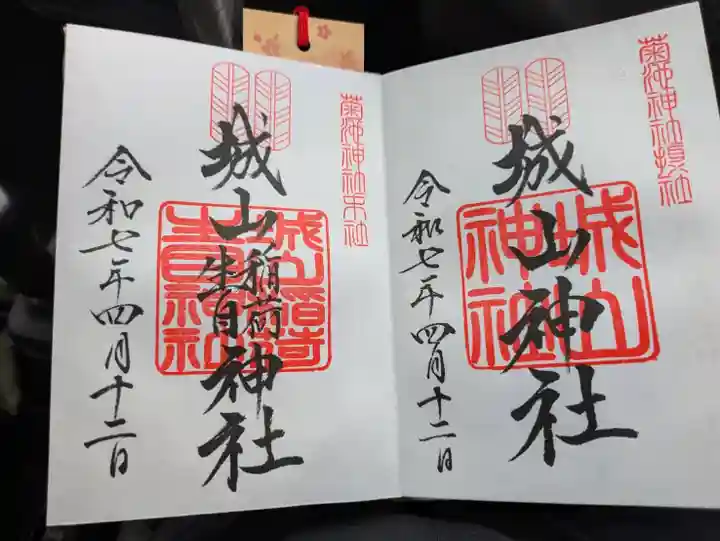 菊池神社摂社
城山神社
城山神社
令和七年四月十二日
菊池神社末社
城山稲荷神社
生目
令和七年四月十二日